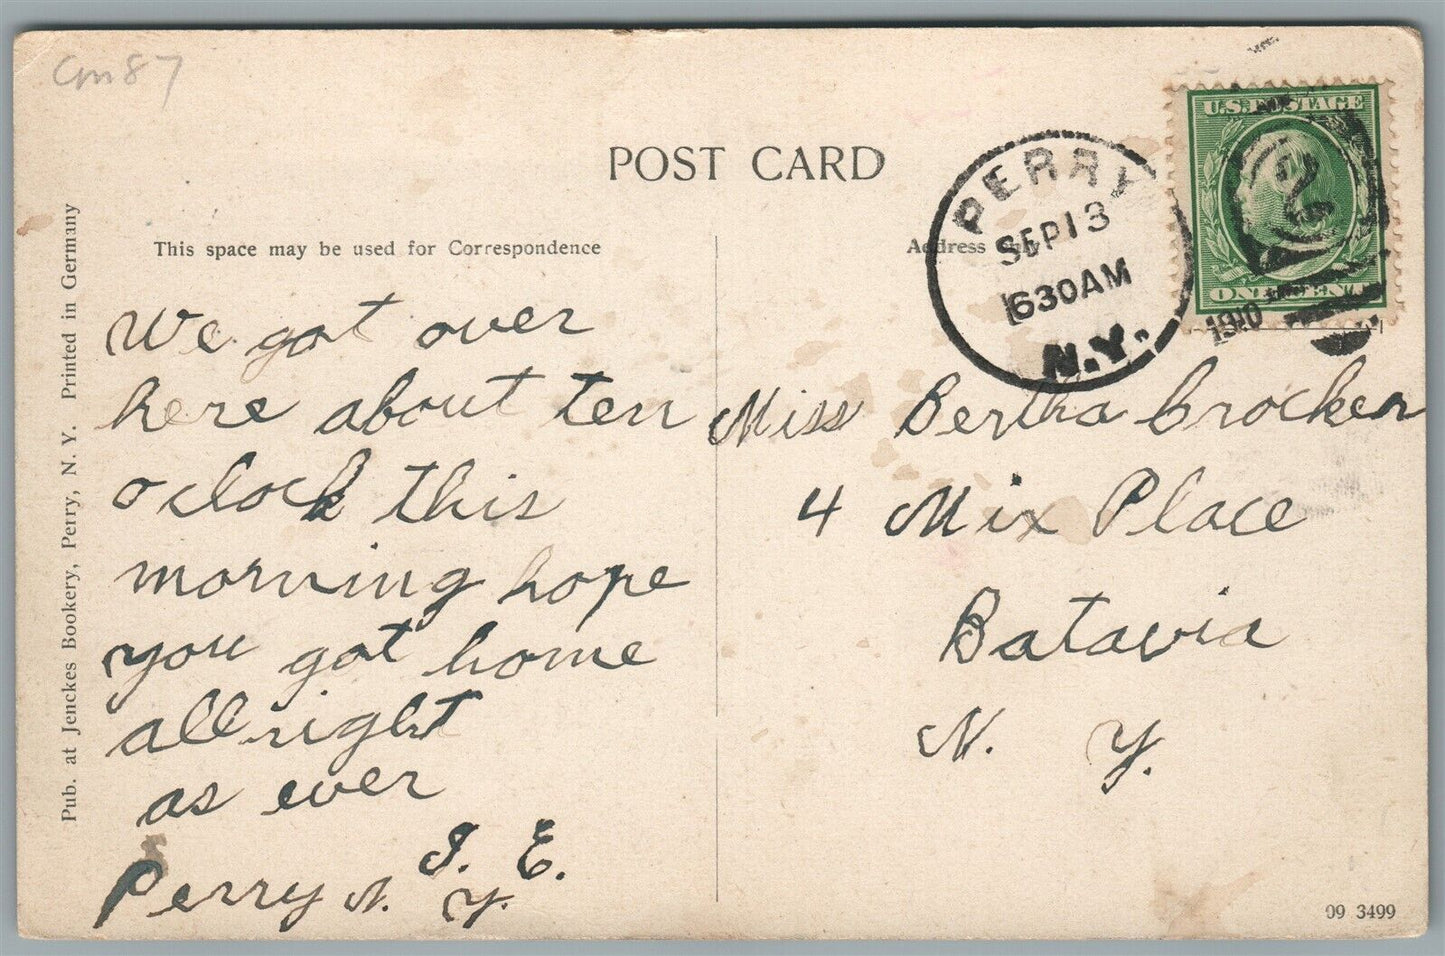 Cm87
POST CARD
This space may be used for Correspondence
Address Only
U.S. POSTAGE
ONE CENT
PERRY
SEP 13
630AM
1910
N.Y.
2
We got over
here about ten
o clock this
morning hope
you got home
all right
as ever
E.
Perry N. Y.
Miss Bertha Crocker
4 Mix Place
Batavia
N. Y.
Pub. at Jenckes Bookery, Perry, N. Y. Printed in Germany
09 3499